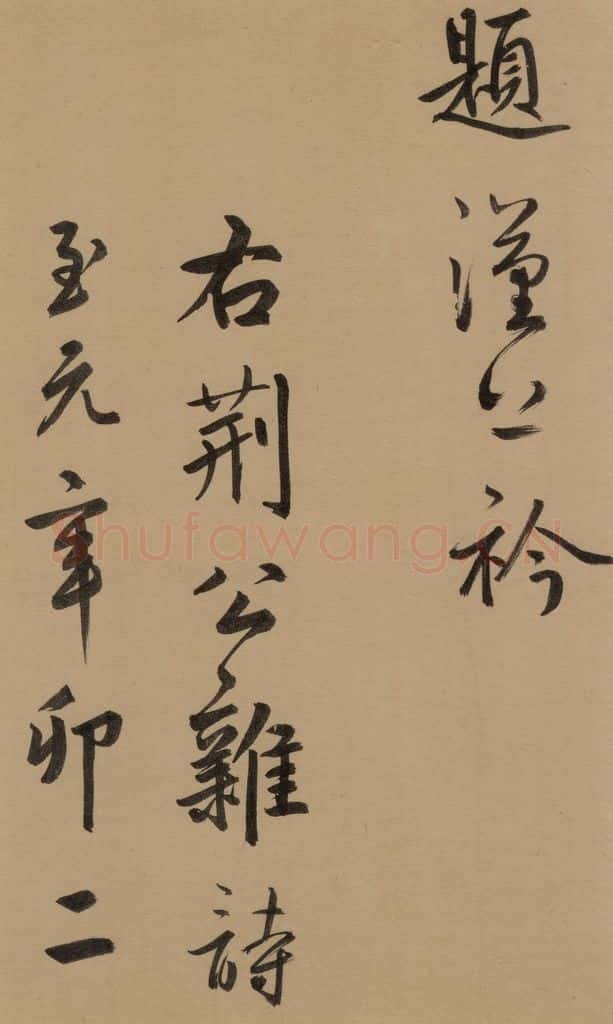 題衿
右荊公雜詩
至元辛卯二
Shufawang.CN